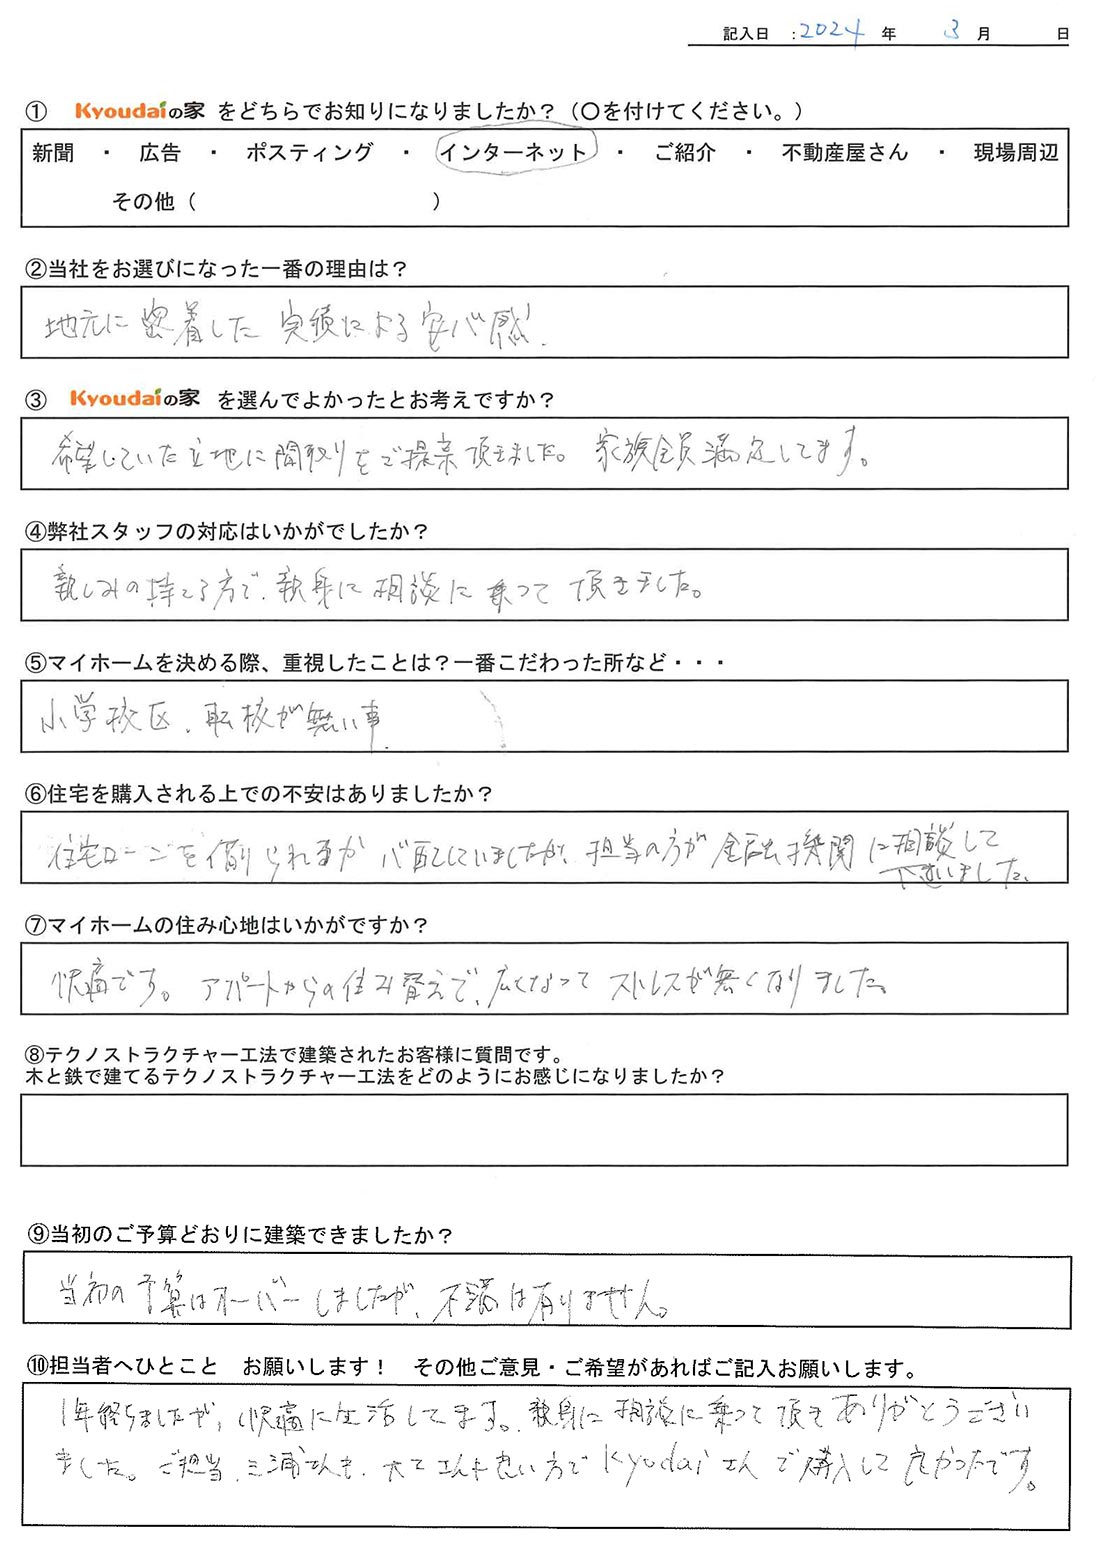 記入日 ：2024 年 3 月 日
① Kyoudaiの家 をどちらでお知りになりましたか？（〇を付けてください。）
新聞 ・ 広告 ・ ポスティング ・ インターネット ・ ご紹介 ・ 不動産屋さん ・ 現場周辺
その他（ ）
②当社をお選びになった一番の理由は？
地元に密着した実績による安心感！
③ Kyoudaiの家 を選んでよかったとお考えですか？
希望していた立地に間取りをご提案頂きました。家族全員満足してます。
④弊社スタッフの対応はいかがでしたか？
親しみの持てる方で、親身に相談に乗って頂きました。
⑤マイホームを決める際、重視したことは？一番こだわった所など・・・
小学校区、転校が無い事
⑥住宅を購入される上での不安はありましたか？
住宅ローンを借りられるか心配していましたが、担当の方が金融機関に相談して
下さいました。
⑦マイホームの住み心地はいかがですか？
快適です。アパートからの住み替えで、広くなってストレスが無くなりました。
⑧テクノストラクチャー工法で建築されたお客様に質問です。
木と鉄で建てるテクノストラクチャー工法をどのようにお感じになりましたか？
⑨当初のご予算どおりに建築できましたか？
当初の予算はオーバーしましたが、不満は有りません。
⑩担当者へひとこと お願いします！ その他ご意見・ご希望があればご記入お願いします。
1年経ちましたが、快適に生活してます。親身に相談に乗って頂きありがとうござい
ました。ご担当、三浦さんも、大工さんも良い方でKyoudaiさんで購入して良かったです。